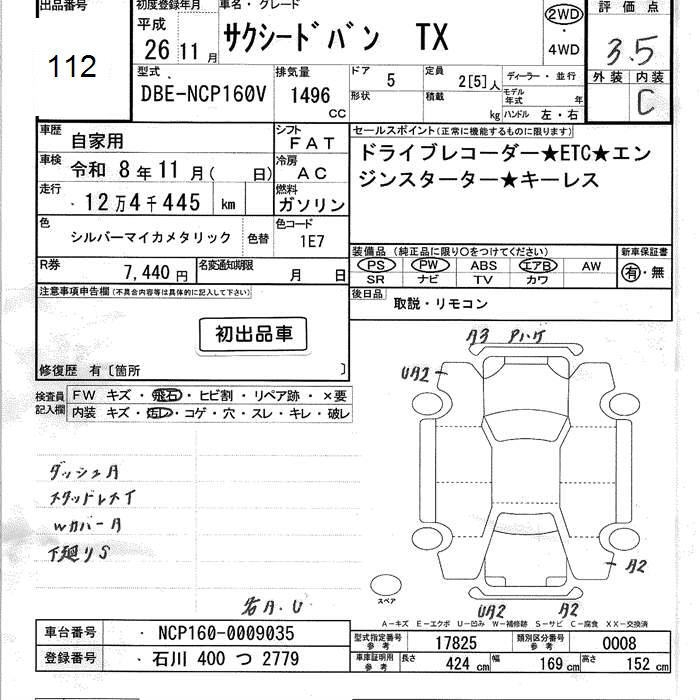 出品番号
112
初度登録年月
平成
26 11 月
車名・グレード
サクシードバン TX
2WD
・
4WD
評価点
3.5
外装 内装
C
型式
DBE-NCP160V
排気量
1496 CC
ドア
5
定員
2[5]人
ディーラー・並行
形状
積載
kg
モデル年式 年
ハンドル 左・右
車歴
自家用
シフト
FAT
車検
令和 8年 11月( 日)
冷房
AC
走行
12万4千445 km
燃料
ガソリン
色
シルバーマイカメタリック
色替
色コード
1E7
R券
7,440 円
名変通知期限
月 日
セールスポイント(正常に機能するものに限ります)
ドライブレコーダー★ETC★エン
ジンスターター★キーレス
装備品 (純正品に限り○をつけてください)
PS PW ABS エアB AW
SR ナビ TV カワ
新車保証書
有・無
後日品
取説・リモコン
注意事項申告欄(不具合内容等は具体的に記入して下さい)
初出品車
修復歴 有〔箇所 〕
検査員
記入欄
FW キズ・飛石・ヒビ割・リペア跡・×要
内装 キズ・汚レ・コゲ・穴・スレ・キレ・破レ
ダッシュA
スタッドレスイ
Wカバー A
下廻りS
A3 Pハゲ
UA2
A2
UA2
A2
スペア
A−キズ E−エクボ U−凹み W−補修跡 S−サビ C−腐食 XX−交換済
車台番号
NCP160-0009035
登録番号
石川 400 つ 2779
型式指定番号
参考
17825
類別区分番号
参考
0008
車庫証明用
参考
長さ
424 cm
幅
169 cm
高さ
152 cm